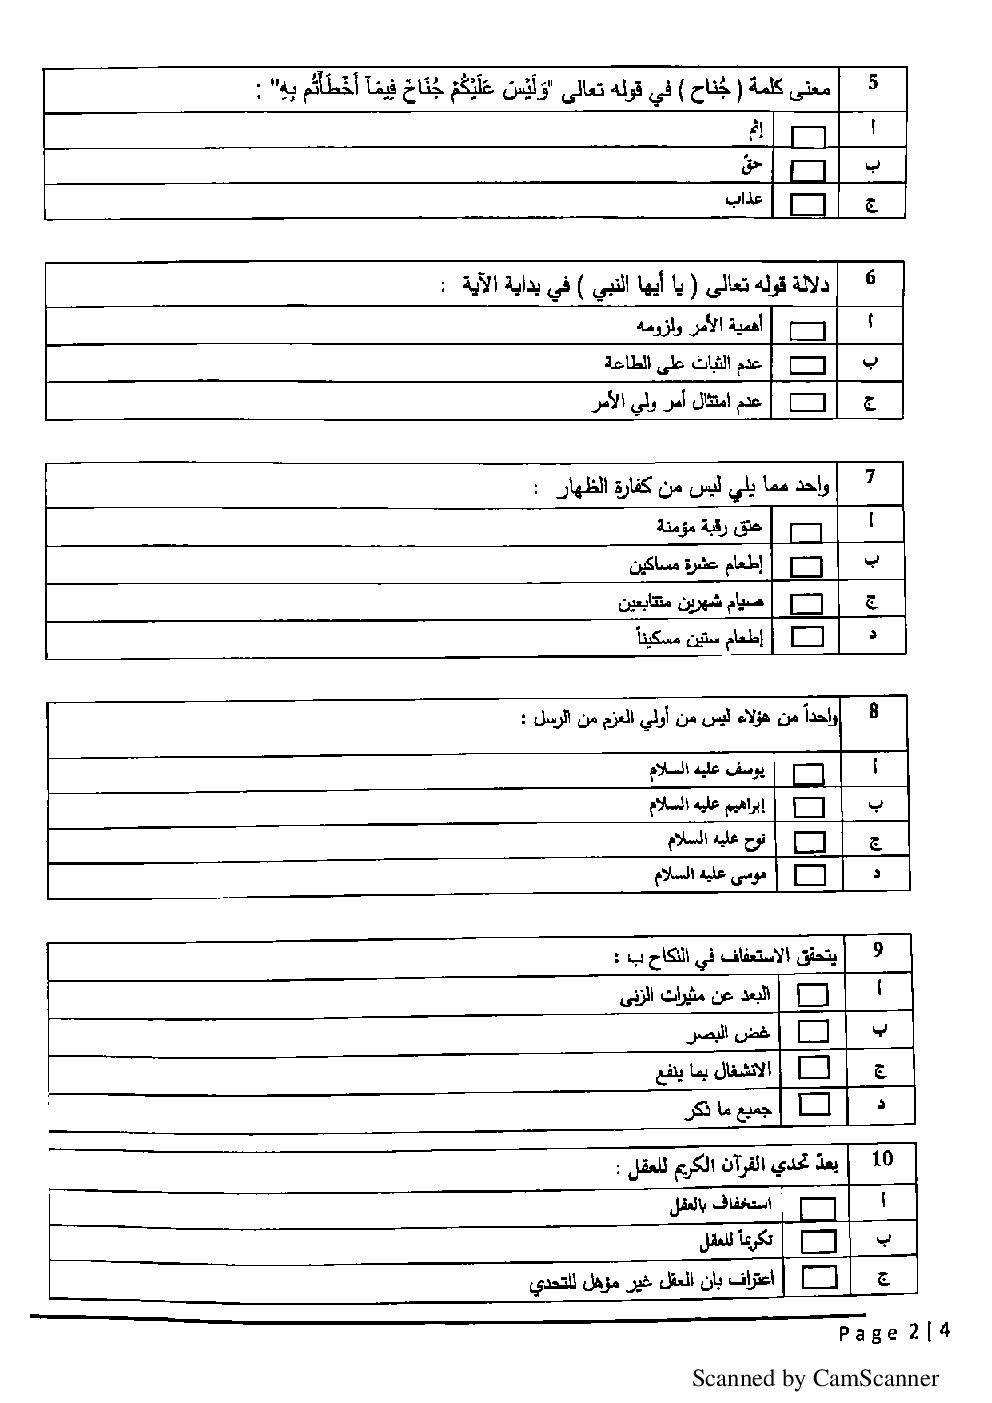 5 معنى كلمة ( جُناح ) في قوله تعالى "وَلَيْسَ عَلَيْكُمْ جُنَاحٌ فِيمَآ أَخْطَأْتُم بِهِ" :
أ إثم
ب حقّ
ج عذاب
6 دلالة قوله تعالى ( يا أيها النبي ) في بداية الآية :
أ أهمية الأمر ولزومه
ب عدم الثبات على الطاعة
ج عدم امتثال أمر ولي الأمر
7 واحد مما يلي ليس من كفارة الظهار :
أ عتق رقبة مؤمنة
ب إطعام عشرة مساكين
ج صيام شهرين متتابعين
د إطعام ستين مسكيناً
8 واحداً من هؤلاء ليس من أولي العزم من الرسل :
أ يوسف عليه السلام
ب إبراهيم عليه السلام
ج نوح عليه السلام
د موسى عليه السلام
9 يتحقق الاستعفاف في النكاح ب :
أ البعد عن مثيرات الزنى
ب غض البصر
ج الانشغال بما ينفع
د جميع ما ذكر
10 يعدّ تحدي القرآن الكريم للعقل :
أ استخفاف بالعقل
ب تكريماً للعقل
ج اعتراف بان العقل غير مؤهل للتحدي
Page 2 | 4
Scanned by CamScanner